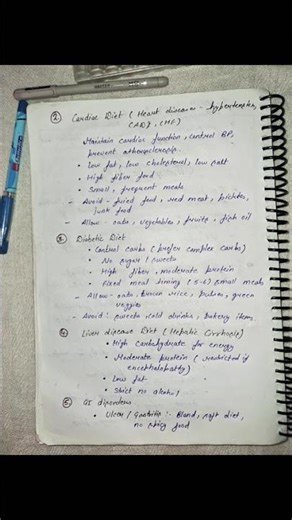 ② Cardiac Diet (Heart disease - hypertension,
CAD), (HF)
Maintain cardiac function, control BP,
prevent atherosclerosis
• Low fat, low cholesterol, low salt
• High fiber food
• Small, frequent meals
- Avoid - fried food, red meat, pickles,
junk food
- Allow - oats, vegetables, fruits, fish oil
③ Diabetic Diet
• Control carbs (prefer complex carbs)
• No sugar / sweets
- High fiber, moderate protein
- Fixed meal timing (5-6) small meals
- Allow - oats, brown rice, pulses, green
veggies
- Avoid : sweets, cold drinks, bakery items.
④ Liver disease Diet (Hepatic Cirrhosis)
• High carbohydrate for energy
• Moderate protein (restricted if
encephalopathy)
• Low fat
• Strict no alcohol
⑤ GI disorders
• Ulcer / Gastritis :- Bland, soft diet,
no spicy food